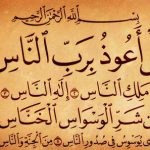 بِسْمِ اللَّهِ الرَّحْمَٰنِ الرَّحِيمِ
أَعُوذُ بِرَبِّ النَّاسِ
مَلِكِ النَّاسِ ۝ إِلَٰهِ النَّاسِ ۝
شَرِّ الْوَسْوَاسِ الْخَنَّاسِ
يُوَسْوِسُ فِي صُدُورِ النَّاسِ ۝ مِنَ الْجِنَّةِ وَالنَّاسِ